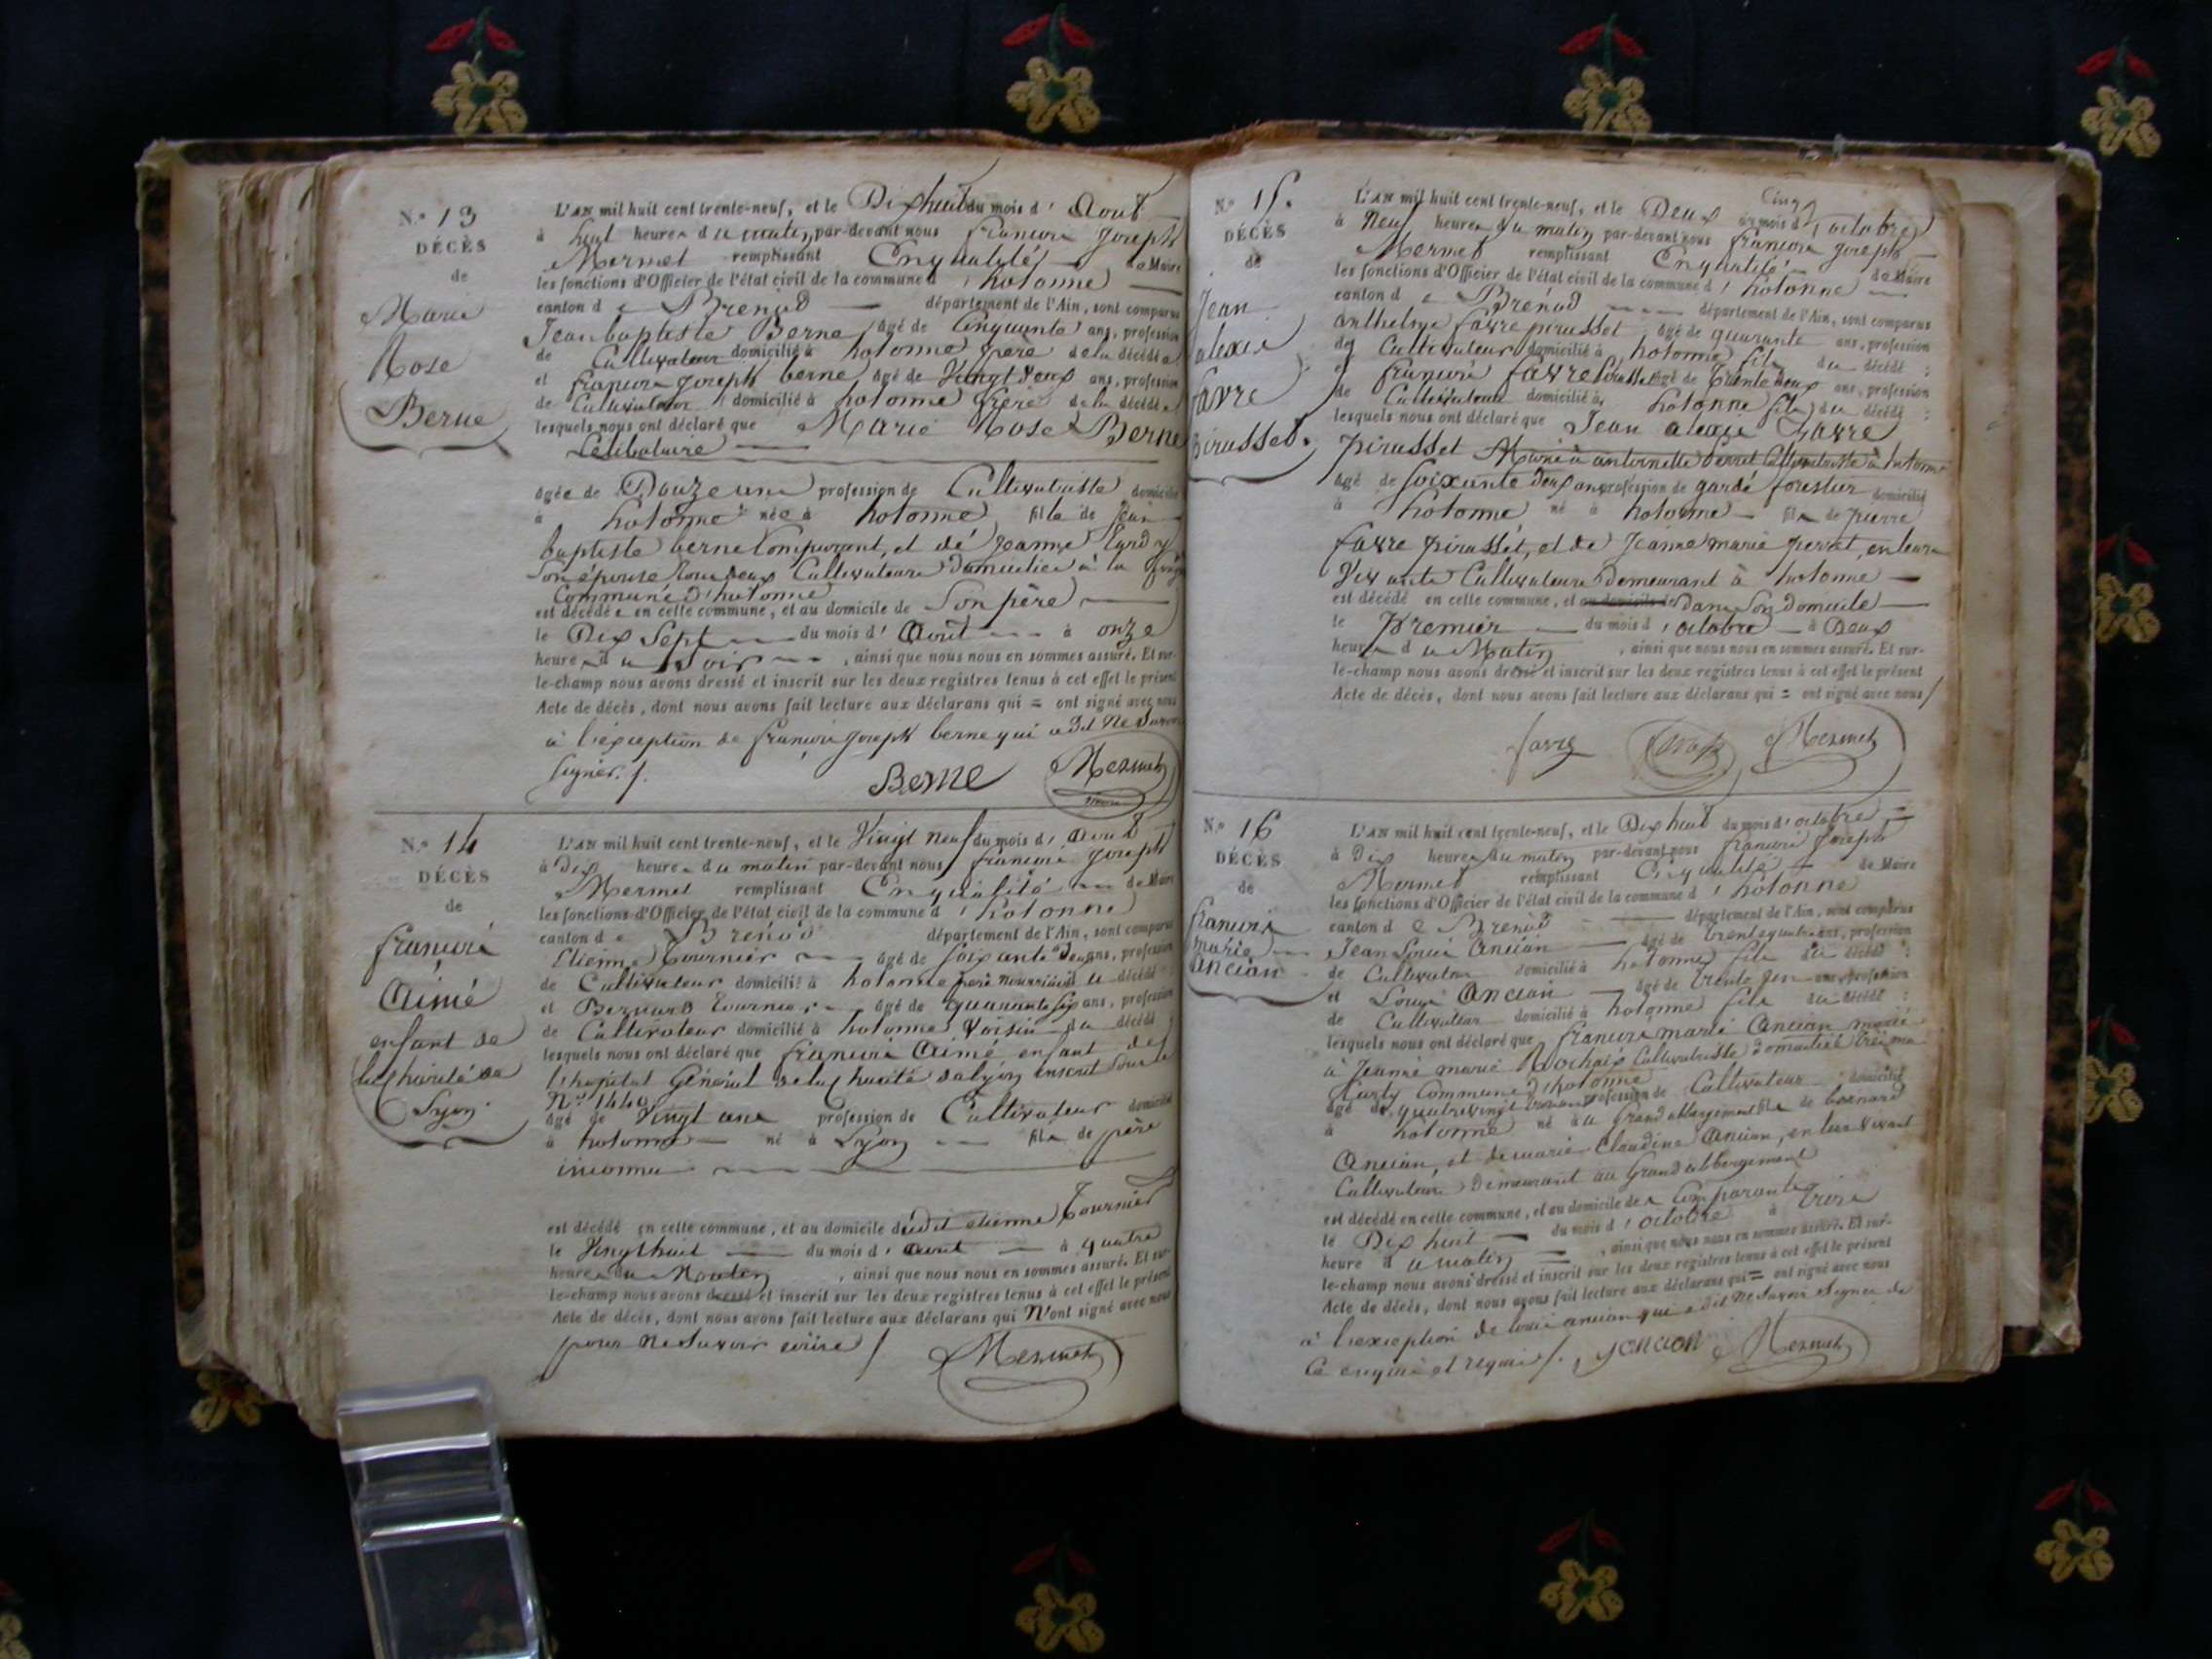 N.º 13
DÉCÈS
de
Marie
Rose
Berne
L'AN mil huit cent trente-neuf, et le Dix huit du mois d' Août
à huit heures du matin par-devant nous françois joseph
Mermet remplissant En qualité de Maire
les fonctions d'Officier de l'état civil de la commune d' hotonne
canton de Brenod département de l'Ain, sont comparus
Jean baptiste Berne âgé de Cinquante ans, profession
de Cultivateur domicilié à hotonne père de la décédée
et françois joseph berne âgé de Vingt deux ans, profession
de Cultivateur domicilié à hotonne frère de la décédée
lesquels nous ont déclaré que Marie Rose Berne
Célibataire
âgée de Douze ans profession de Cultivatrice domicilié
à hotonne née à hotonne fille de Jean
baptiste berne Comparant, et de jeanne
Son épouse tous deux Cultivateurs Domiciliés à la
Commune d'hotonne
est décédée en cette commune, et au domicile de Son père
le Dix Sept du mois d' Août à onze
heures du Soir , ainsi que nous nous en sommes assuré. Et sur-
le-champ nous avons dressé et inscrit sur les deux registres tenus à cet effet le présent
Acte de décès, dont nous avons fait lecture aux déclarans qui = ont signé avec nous
à l'exception de françois joseph berne qui a dit Ne Savoir
Signer. /.
Berne Mermet
N.º 14
DÉCÈS
de
françois
Aimé
enfant de
la charité de
Lyon
L'AN mil huit cent trente-neuf, et le Vingt neuf du mois d' Août
à Dix heures du matin par-devant nous françois joseph
Mermet remplissant En qualité de Maire
les fonctions d'Officier de l'état civil de la commune d' hotonne
canton de Brénod département de l'Ain, sont comparus
Etienne Tournier âgé de Soixante Deux ans, profession
de Cultivateur domicilié à hotonne père nourricier du décédé
et Bernard Tournier âgé de quarante Six ans, profession
de Cultivateur domicilié à hotonne Voisin du décédé
lesquels nous ont déclaré que françois Aimé enfant de
l'hopital Général de la charité de lyon inscrit Sous le
N.º 1440
âgé de Vingt ans profession de Cultivateur domicilié
à hotonne né à Lyon fils de père
inconnu
est décédé en cette commune, et au domicile dudit etienne Tournier
le Vingt huit du mois d' Août à quatre
heures du Matin , ainsi que nous nous en sommes assuré. Et sur-
le-champ nous avons dressé et inscrit sur les deux registres tenus à cet effet le présent
Acte de décès, dont nous avons fait lecture aux déclarans qui N'ont signé avec nous
pour Ne Savoir écrire /
Mermet
N.º 15.
DÉCÈS
de
Jean
alexis
favre
pirasset.
L'AN mil huit cent trente-neuf, et le Deux du mois d' octobre
à Neuf heures du matin par-devant nous françois joseph
Mermet remplissant En qualité de Maire
les fonctions d'Officier de l'état civil de la commune d' hotonne
canton de Brénod département de l'Ain, sont comparus
Anthelme favre pirasset âgé de quarante ans, profession
de Cultivateur domicilié à hotonne fils du décédé ;
et françois favre pirasset âgé de Trente Deux ans, profession
de Cultivateur domicilié à hotonne fils du décédé :
lesquels nous ont déclaré que Jean alexis favre
pirasset Marié à antoinette perret Cultivatrice à hotonne
âgé de Soixante Deux ans profession de garde forestier domicilié
à hotonne né à hotonne fils de pierre
favre pirasset, et de Jeanne marie perret, en leurs
Vivants Cultivateurs Demeurant à hotonne
est décédé en cette commune, et au domicile de Dans Son Domicile
le Premier du mois d' octobre à Deux
heures du Matin , ainsi que nous nous en sommes assuré. Et sur-
le-champ nous avons dressé et inscrit sur les deux registres tenus à cet effet le présent
Acte de décès, dont nous avons fait lecture aux déclarans qui = ont signé avec nous /
favre Mermet
N.º 16
DÉCÈS
de
françois
marie
Ancian
L'AN mil huit cent trente-neuf, et le Dix huit du mois d' octobre
à Dix heures du matin par-devant nous françois joseph
Mermet remplissant En qualité de Maire
les fonctions d'Officier de l'état civil de la commune d' hotonne
canton de Brenod département de l'Ain, sont comparus
Jean Louis Ancian âgé de trente quatre ans, profession
de Cultivateur domicilié à hotonne fils du décédé ;
et Louis Ancian âgé de trente un ans, profession
de Cultivateur domicilié à hotonne fils du décédé :
lesquels nous ont déclaré que françois marie Ancian marié
à Jeanne marie Rochaix Cultivatrice domiciliée
Commune d'hotonne
âgé de quatrevingt profession de Cultivateur domicilié
à hotonne né au Grand abbergement fils de bernard
Ancian, et de marie Claudine Ancian, en leur vivant
Cultivateurs Demeurant au Grand abbergement
est décédé en cette commune, et au domicile des Comparants
le Dix huit du mois d' octobre à trois
heure du matin , ainsi que nous nous en sommes assuré. Et sur-
le-champ nous avons dressé et inscrit sur les deux registres tenus à cet effet le présent
Acte de décès, dont nous avons fait lecture aux déclarans qui = ont signé avec nous
à l'exception de louis ancian qui a dit Ne Savoir Signer de
Ce enquis et requis /. Mermet